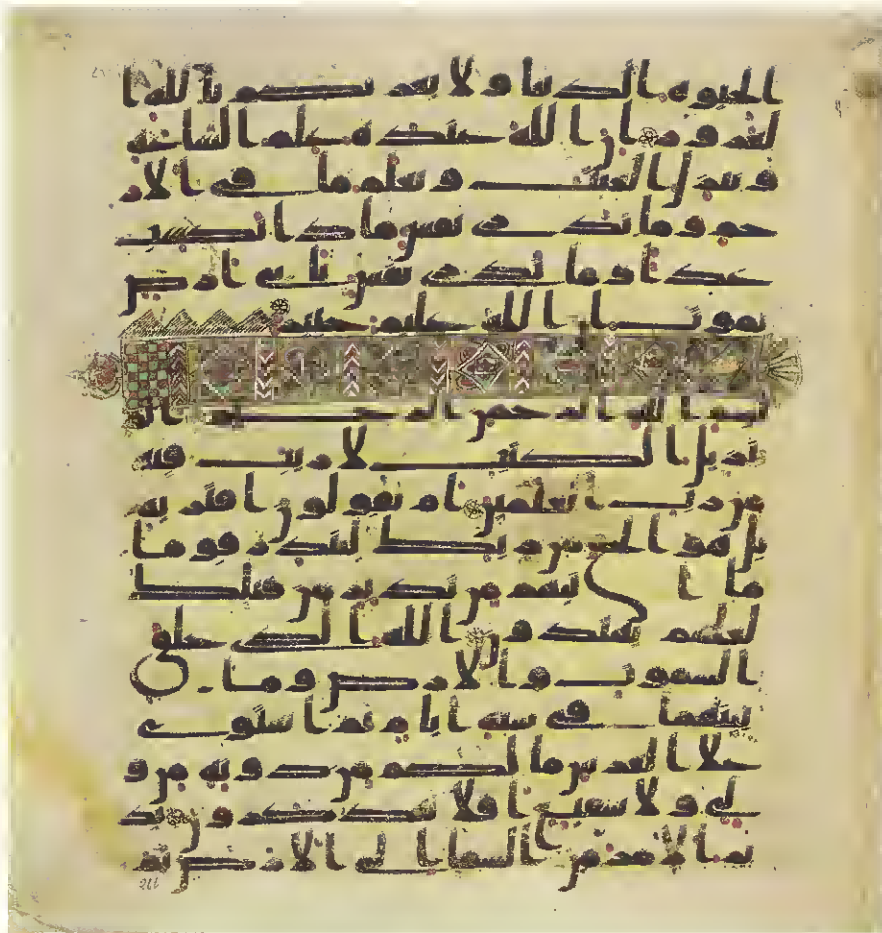 الحيوة الدنيا ولا يغرنكم بالله ا
لغرور ان الله عنده علم الساعة
وينزل الغيث ويعلم ما في الار
حم وما تدري نفس ماذا تكسب
غدا وما تدري نفس باي ارض
تموت ان الله عليم خبير
بسم الله الرحمن الرحيم الم
تنزيل الكتب لا ريب فيه
من رب العلمين ام يقولون افتريه
بل هو الحق من ربك لتنذر قوما
ما اتيهم من نذير من قبلك
لعلهم يهتدون الله الذي خلق
السموت والارض وما
بينهما في ستة ايام ثم استوى
على العرش ما لكم من دونه من و
لي ولا شفيع افلا تتذكرون يد
بر الامر من السما الى الارض ثم